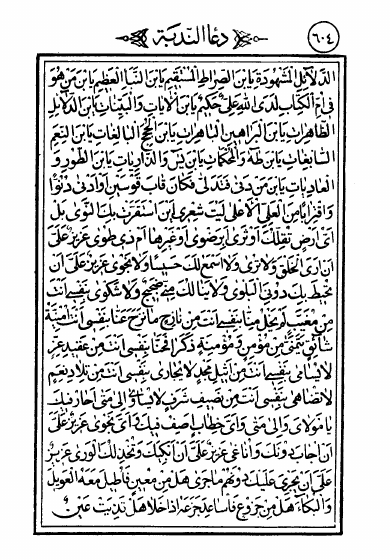 ٦٠٤
دعاء الندبة
الدلائل المشهودة يابن الصراط المستقيم يابن النبأ العظيم يابن من هو
في ام الكتاب لدى الله علي حكيم يابن الايات والبينات يابن الدلائل
الظاهرات يابن البراهين الباهرات يابن الحجج البالغات يابن النعم
السابغات يابن طه والمحكمات يابن يس والذاريات يابن الطور و
العاديات يابن من دنى فتدلى فكان قاب قوسين او ادنى دنوا
واقترابا من العلي الاعلى ليت شعري اين استقرت بك النوى بل
اي ارض تقلك او ثرى ابرضوى او غيرها ام ذي طوى عزيز علي
ان ارى الخلق ولا ترى ولا اسمع لك حسيسا ولا نجوى عزيز علي ان
تحيط بك دوني البلوى ولا ينالك مني ضجيج ولا شكوى بنفسي انت
من مغيب لم يخل منا بنفسي انت من نازح ما نزح عنا بنفسي انت امنية
شائق يتمنى من مؤمن ومؤمنة ذكرا فحنا بنفسي انت من عقيد عز
لا يسامى بنفسي انت من اثيل مجد لا يجارى بنفسي انت من تلاد نعم
لا تضاهى بنفسي انت من نصيف شرف لا يساوى الى متى احار فيك
يا مولاي والى متى واي خطاب اصف فيك واي نجوى عزيز علي
ان اجاب دونك واناغى عزيز علي ان ابكيك ويخذلك الورى عزيز
علي ان يجري عليك دونهم ما جرى هل من معين فاطيل معه العويل
والبكاء هل من جزوع فاساعد جزعه اذا خلا هل قذيت عين